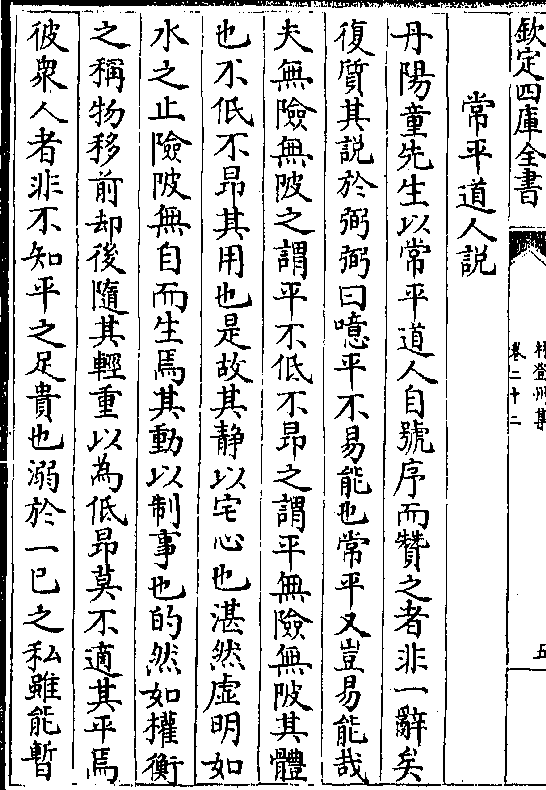 欽定四庫全書
林登州集
卷二十二
五
常平道人説
丹陽童先生以常平道人自號序而贊之者非一辭矣
復質其説於弼弼曰噫平不易能也常平又豈易能哉
夫無險無陂之謂平不低不昂之謂平無險無陂其體
也不低不昂其用也是故其静以宅心也湛然虚明如
水之止險陂無自而生焉其動以制事也的然如權衡
之稱物移前却後隨其輕重以為低昂莫不適其平焉
彼衆人者非不知平之足貴也溺於一已之私雖能暫